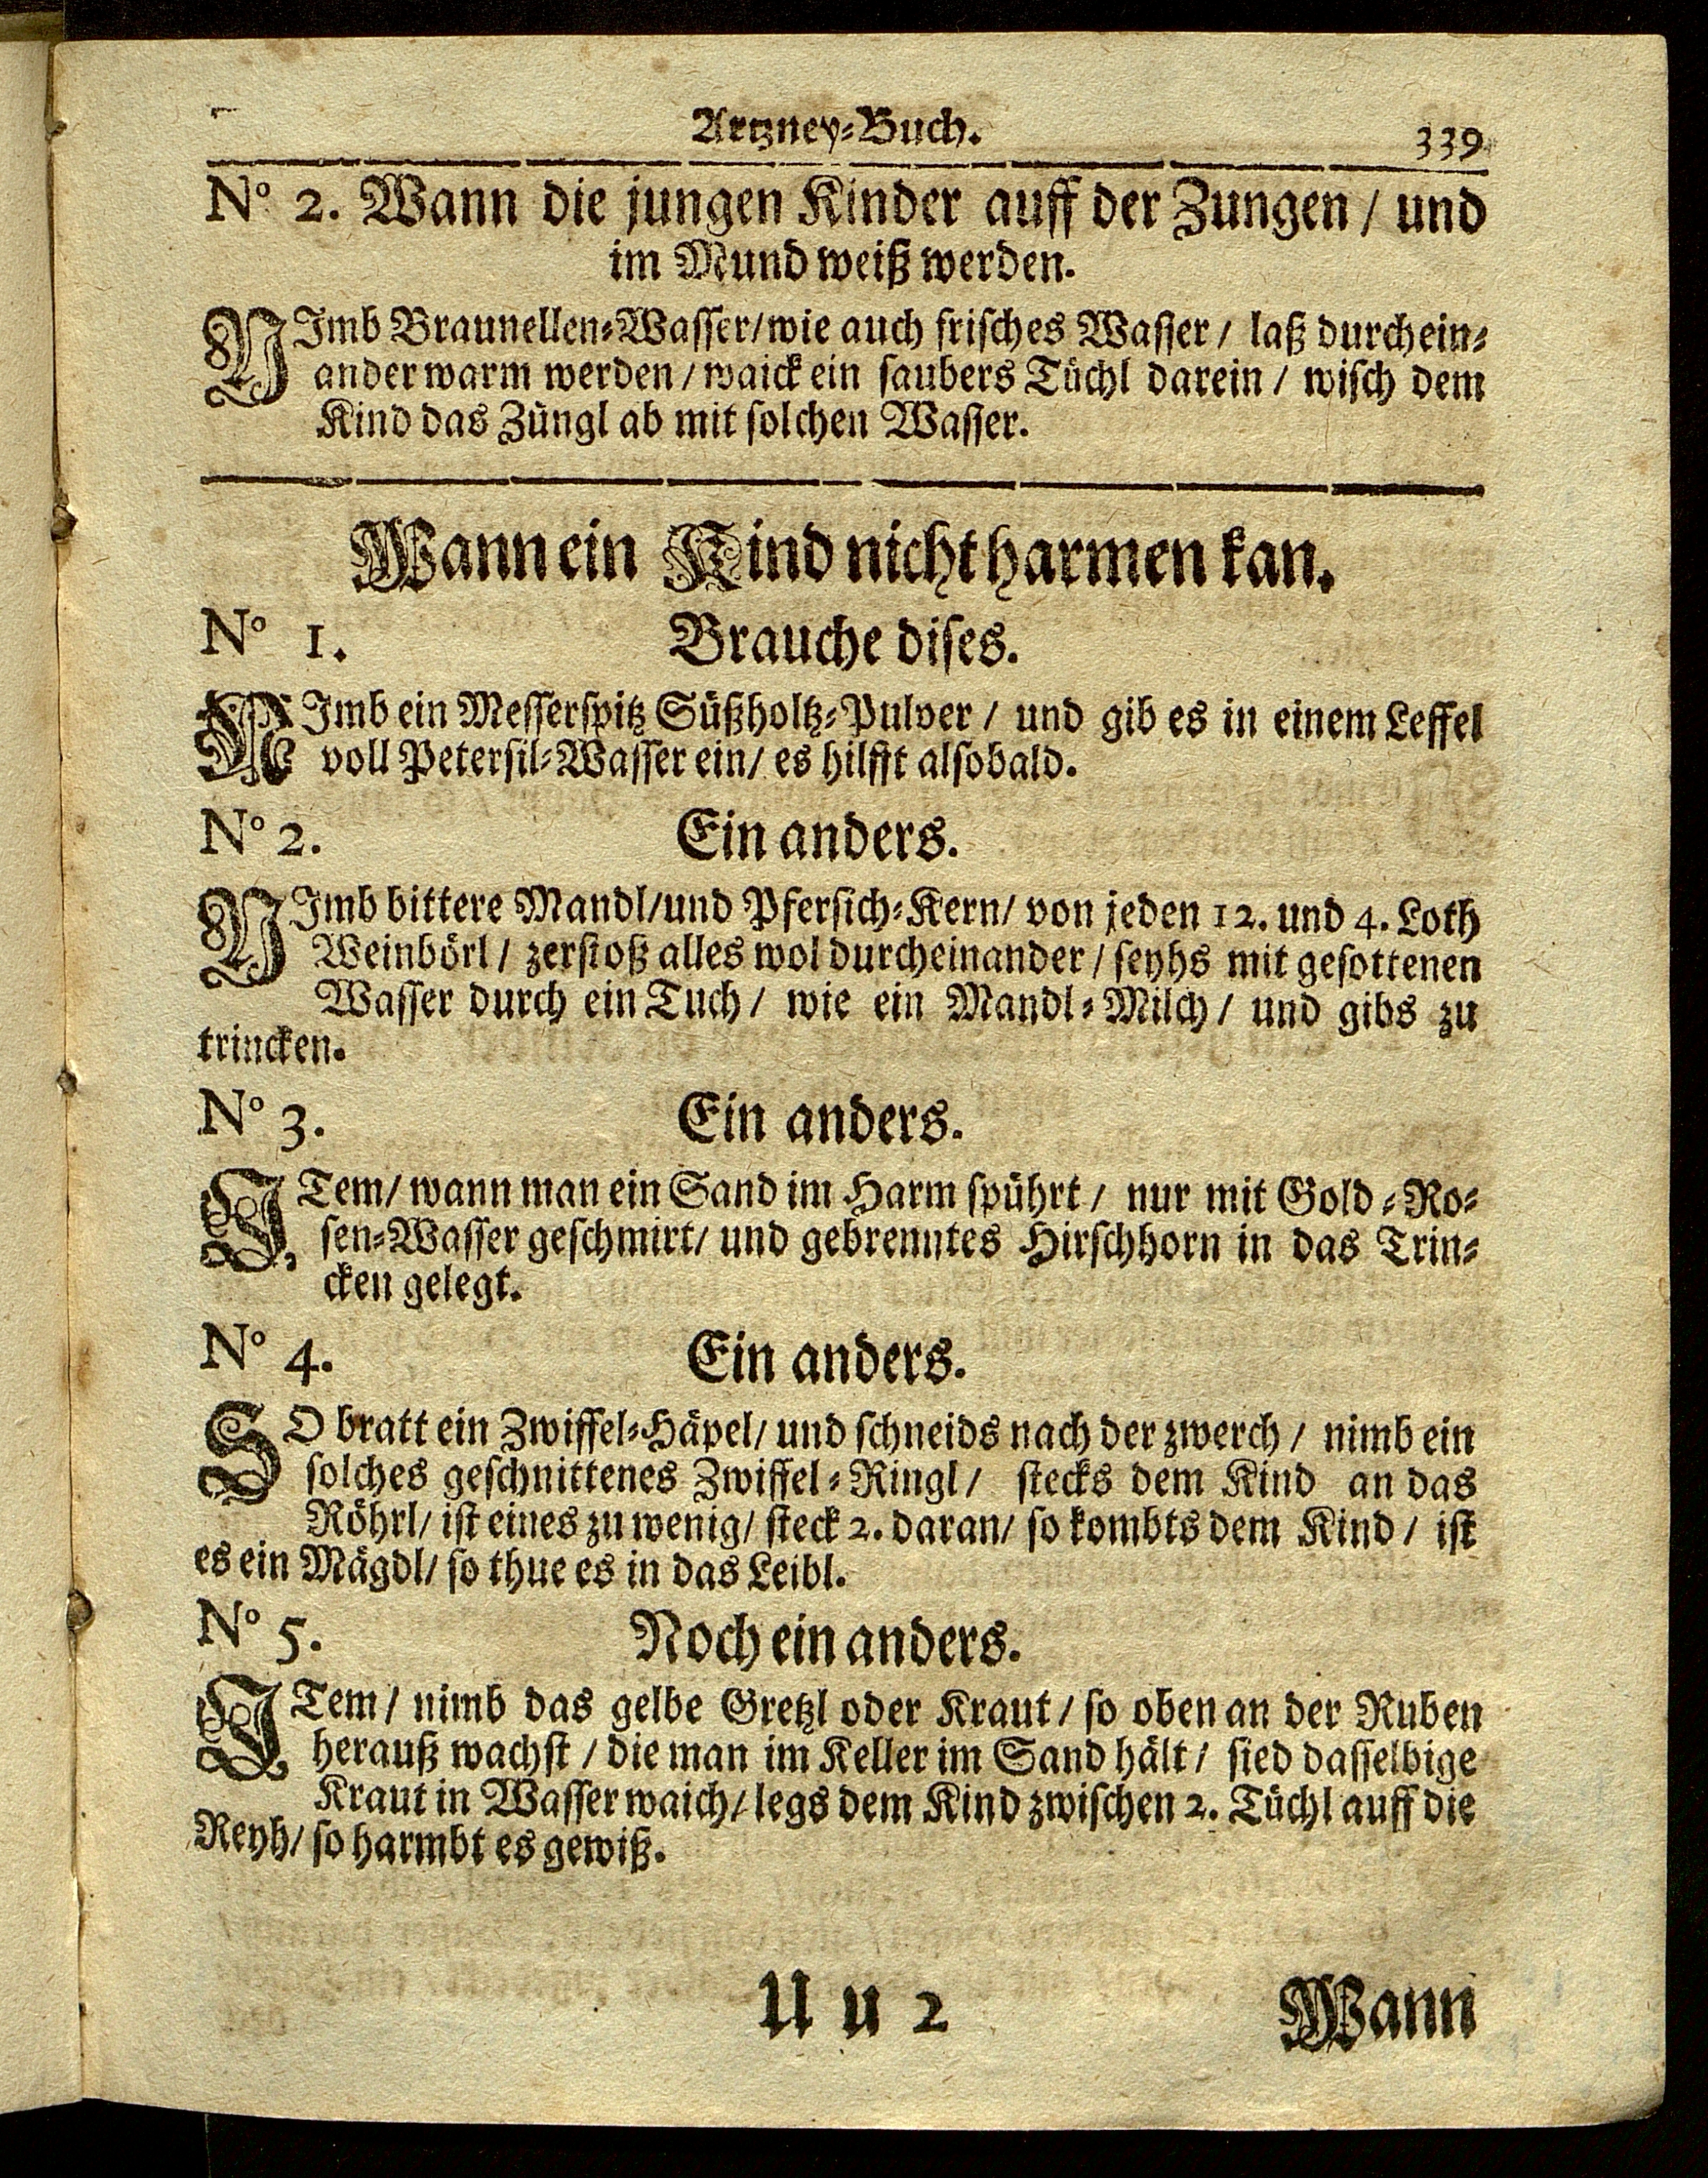 Artzney-Buch. 339
No 2. Wann die jungen Kinder auff der Zungen / und
im Mund weiß werden.
NImb Braunellen-Wasser/wie auch frisches Wasser / laß durchein-
ander warm werden / waick ein saubers Tüchl darein / wisch dem
Kind das Züngl ab mit solchen Wasser.
Wann ein Kind nicht harmen kan.
No 1. Brauche dises.
NImb ein Messerspitz Süßholtz-Pulver / und gib es in einem Leffel
voll Petersil-Wasser ein / es hilfft alsobald.
No 2. Ein anders.
NImb bittere Mandl/und Pfersich-Kern/ von jeden 12. und 4. Loth
Weinbörl / zerstoß alles wol durcheinander / seyhs mit gesottenen
Wasser durch ein Tuch / wie ein Mandl-Milch / und gibs zu
trincken.
No 3. Ein anders.
ITem/ wann man ein Sand im Harm spührt / nur mit Gold-Ro-
sen-Wasser geschmirt/ und gebrenntes Hirschhorn in das Trin-
cken gelegt.
No 4. Ein anders.
SO bratt ein Zwiffel-Häpel/ und schneids nach der zwerch / nimb ein
solches geschnittenes Zwiffel-Ringl / stecks dem Kind an das
Röhrl/ ist eines zu wenig/ steck 2. daran/ so kombts dem Kind / ist
es ein Mägdl/ so thue es in das Leibl.
No 5. Noch ein anders.
ITem / nimb das gelbe Gretzl oder Kraut / so oben an der Ruben
herauß wachst / die man im Keller im Sand hält / sied dasselbige
Kraut in Wasser waich/ legs dem Kind zwischen 2. Tüchl auff die
Reyh/ so harmbt es gewiß.
U u 2 Wann